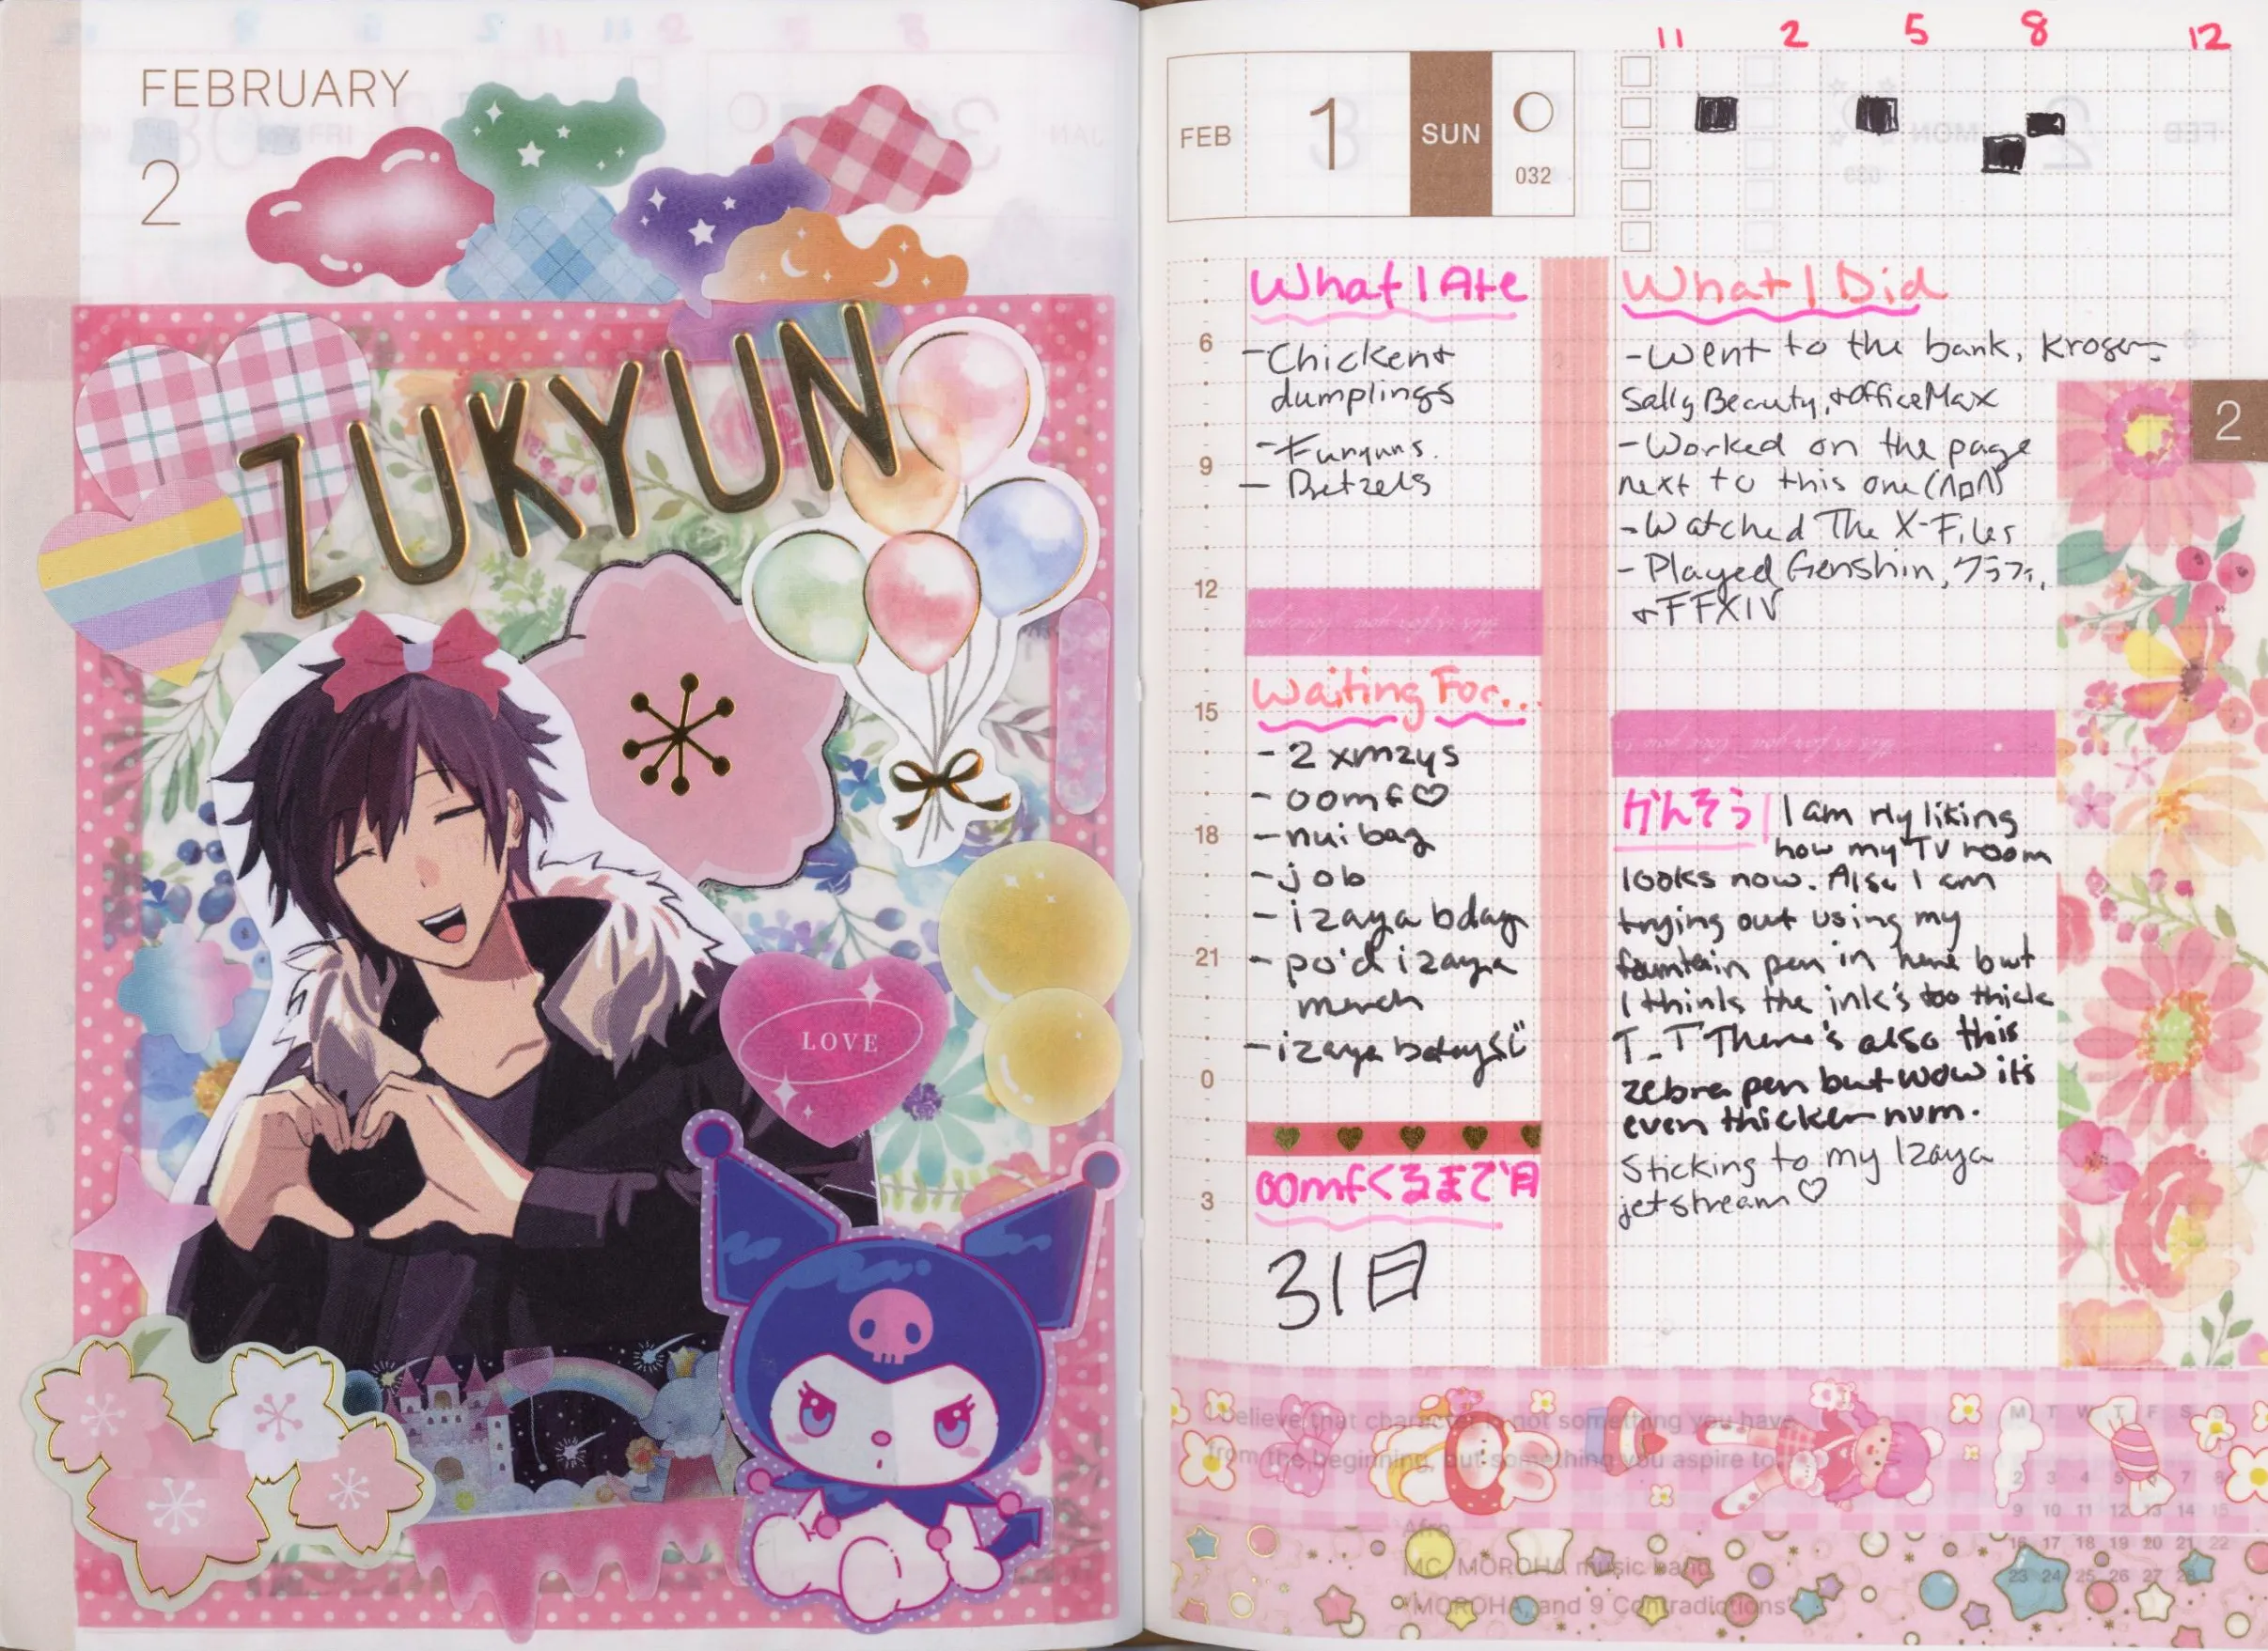 FEBRUARY
2
ZUKYUN
LOVE
11 2 5 8 12
FEB 1 SUN
032
What I Ate
-Chicken+
dumplings
-Funyuns.
- Pretzels
6
9
12
15
18
21
0
3
Waiting For...
- 2 xmzys
- oomf♡
- nui bag
- job
- izaya bday
- po'd izaya
merch
-izaya bday
oomfくるまで
31日
What I Did
-Went to the bank, Kroger,
Sally Beauty, + OfficeMax
-Worked on the page
next to this one
-Watched The X-Files
-Played Genshin,
+ FFXIV
2
this is for you love you
かんそう I am rly liking
how my TV room
looks now. Also I am
trying out using my
fountain pen in here but
I think the ink's too thick
T_T There's also this
zebra pen but wow it's
even thicker
Sticking to my Izaya
jetstream♡
I believe that character is not something you have
from the beginning, but something you aspire to.
Afro
MC, MOROHA music band
"MOROHA, and 9 Contradictions"
M T W T F S S
2 3 4 5 6 7 8
9 10 11 12 13 14 15
16 17 18 19 20 21 22
23 24 25 26 27 28